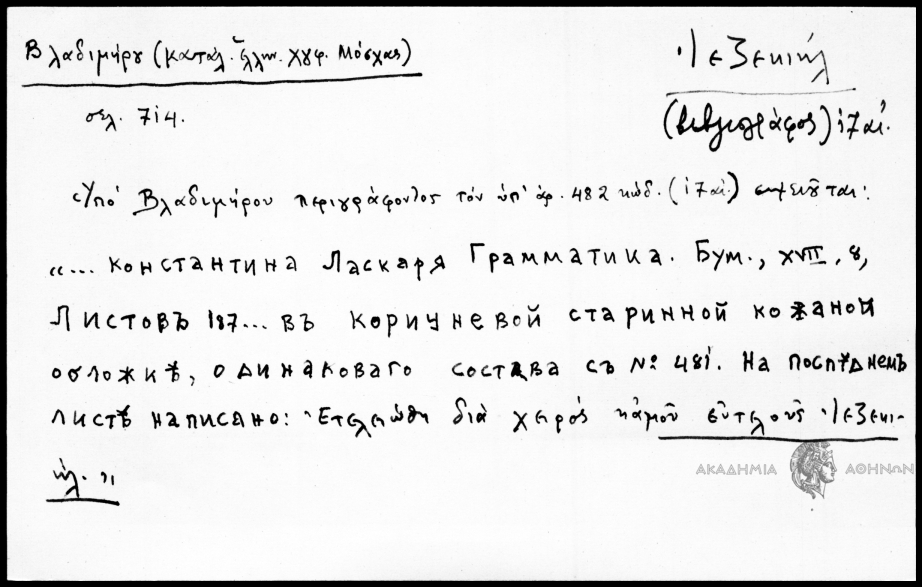 Βλαδιμήρου (Κατάλ. ἑλλην. χγφ. Μόσχας)
Ἰεζεκιήλ
σελ. 714.
(βιβλιογράφος) ιζ΄ αἰ.
Ὑπό Βλαδιμήρου περιγράφοντος τόν ὑπ' ἀρ. 482 κώδ. (ιζ΄ αἰ.) σημειοῦται:
"... Константина Ласкаря Грамматика. Бум., XVII, 8,
Листовъ 187... въ коричневой старинной кожаной
обложкѣ, одинаковаго состава съ № 481. На послѣднемъ
листѣ написано: Ἐτελειώθη διὰ χειρός κἀμοῦ εὐτελοῦς Ἰεζεκι-
ήλ. "
ΑΚΑΔΗΜΙΑ ΑΘΗΝΩΝ